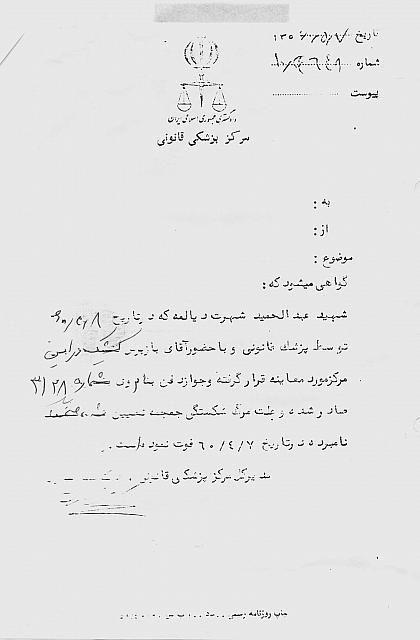 تاریخ
شماره
پیوست
دادگستری جمهوری اسلامی ایران
مرکز پزشکی قانونی
به :
از :
موضوع :
گواهی میشود که :
شهید عبدالحمید شهرت دیالمه که در تاریخ
توسط پزشک قانونی و با حضور آقای بازپرس کشیک در این
مرکز مورد معاینه قرار گرفته و جواز دفن بنام وی شماره
صادر شده و علت مرگ شکستگی جمجمه تعیین
نامبرده در تاریخ ۶۰/۴/۷ فوت نموده است .
مدیر کل مرکز پزشکی قانونی
چاپ روزنامه رسمی